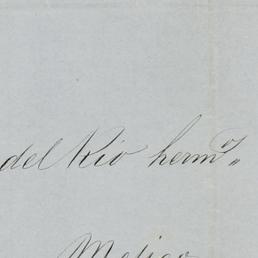 del Rio herm.ᵒˢ „
Mejico